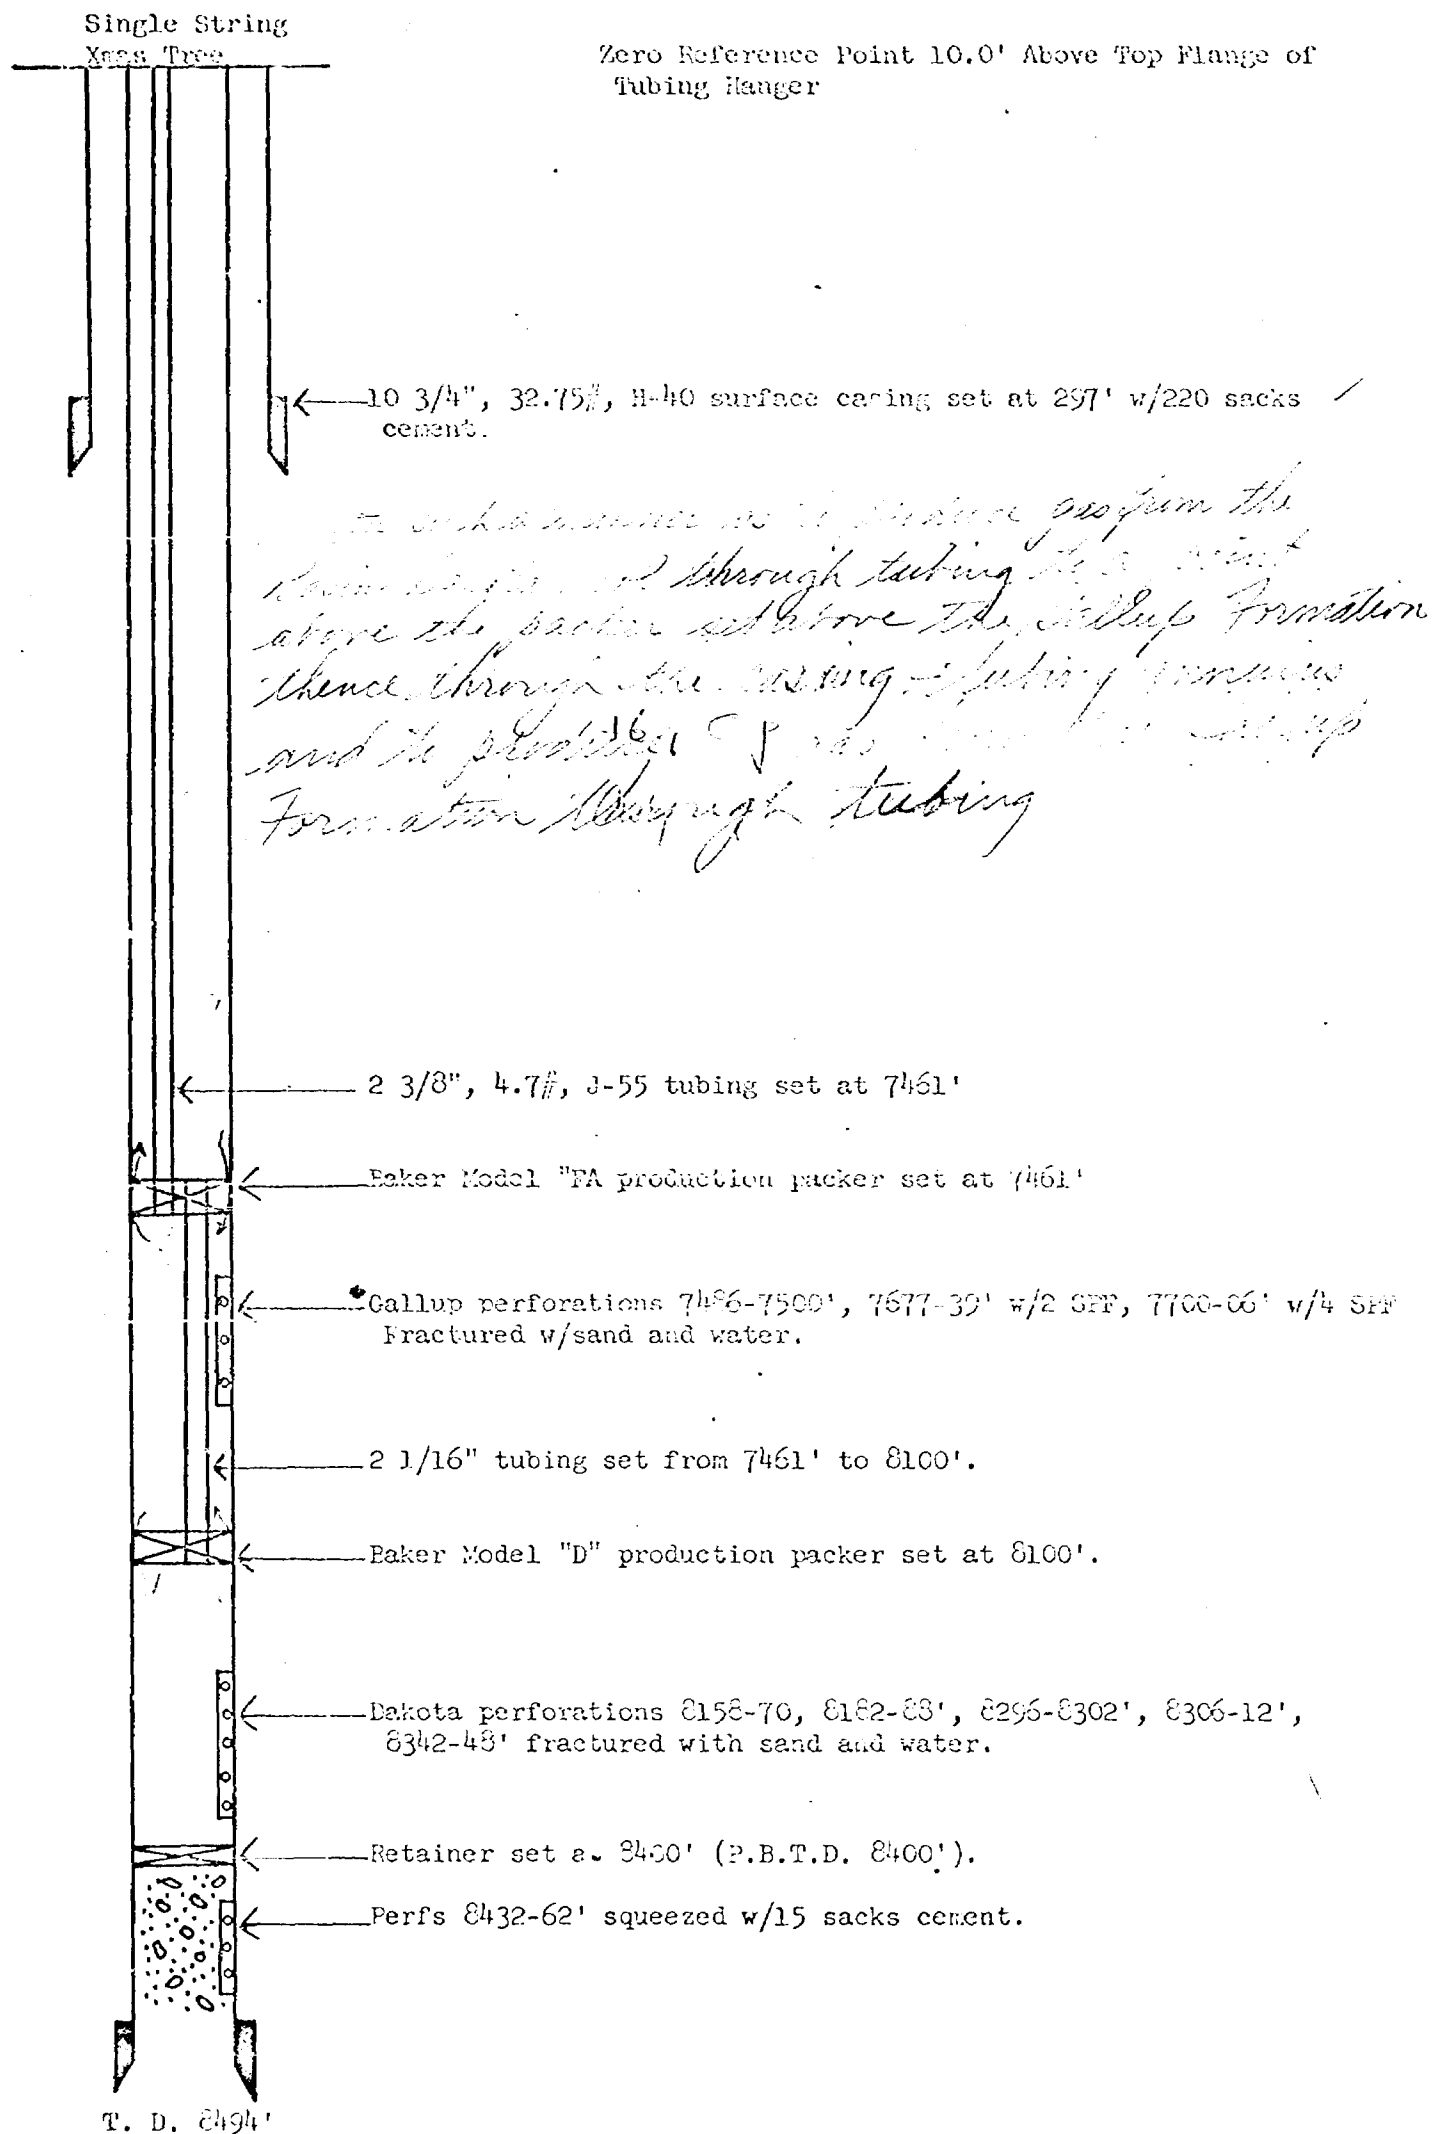 Single String
Xmas Tree
Zero Reference Point 10.0' Above Top Flange of
Tubing Hanger
10 3/4", 32.75#, H-40 surface casing set at 297' w/220 sacks
cement.
gas from the
through tubing to a point
above the packer set above the Gallup Formation
thence through the casing - tubing annulus
and to produce
Formation through tubing
2 3/8", 4.7#, J-55 tubing set at 7461'
Baker Model "FA production packer set at 7461'
Gallup perforations 7486-7500', 7677-39' w/2 SPF, 7700-06' w/4 SPF
Fractured w/sand and water.
2 1/16" tubing set from 7461' to 8100'.
Baker Model "D" production packer set at 8100'.
Dakota perforations 8158-70, 8182-88', 8296-8302', 8306-12',
8342-48' fractured with sand and water.
Retainer set 8400' (P.B.T.D. 8400').
Perfs 8432-62' squeezed w/15 sacks cement.
T. D. 8494'